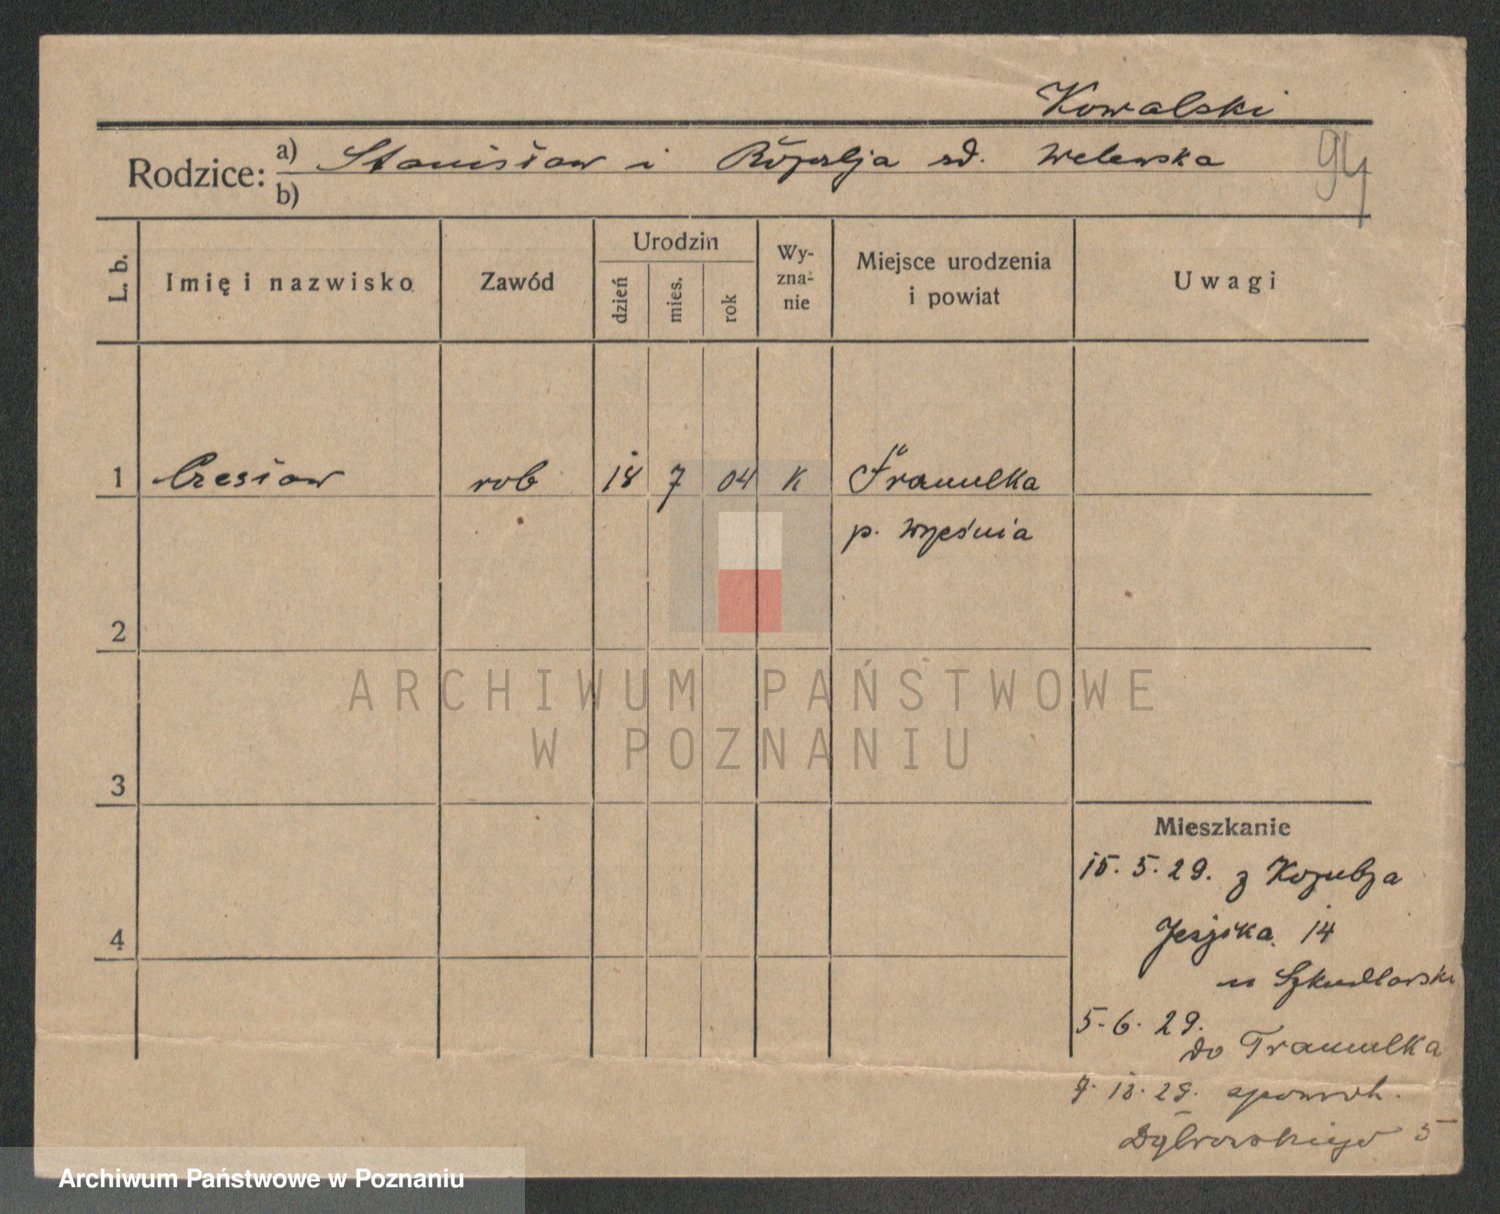 Kowalski
94
Rodzice: a) Stanisław i Rozalja zd. Welewska
b)
L. b.
Imię i nazwisko
Zawód
Urodzin
dzień
mies.
rok
Wy-
zna-
nie
Miejsce urodzenia
i powiat
Uwagi
1 Czesław rob 18 7 04 k
p. Września
2
ARCHIWUM PAŃSTWOWE
W POZNANIU
3
Mieszkanie
15. 5. 29. z
14
4
u Szkudlarski
5. 6. 29.
do
29.
Dąbrowskiego 5
Archiwum Państwowe w Poznaniu